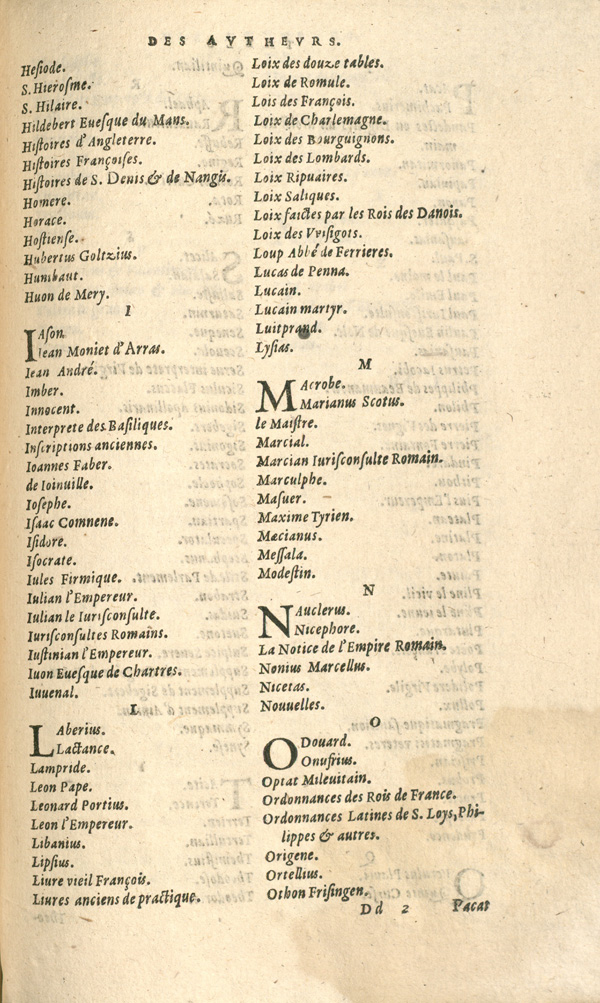 DES AVTHEVRS.
Hesiode.
S. Hierosme.
S. Hilaire.
Hildebert Euesque du Mans.
Histoires d'Angleterre.
Histoires Françoises.
Histoires de S. Denis & de Nangis.
Homere.
Horace.
Hostiense.
Hubertus Goltzius.
Humbaut.
Huon de Mery.
I
IAson.
Iean Moniet d'Arras.
Iean André.
Imber.
Innocent.
Interprete des Basiliques.
Inscriptions anciennes.
Ioannes Faber.
de Ioinuille.
Iosephe.
Isaac Comnene.
Isidore.
Isocrate.
Iules Firmique.
Iulian l'Empereur.
Iulian le Iurisconsulte.
Iurisconsultes Romains.
Iustinian l'Empereur.
Iuon Euesque de Chartres.
Iuuenal.
L
LAberius.
Lactance.
Lampride.
Leon Pape.
Leonard Portius.
Leon l'Empereur.
Libanius.
Lipsius.
Liure vieil François.
Liures anciens de practique.
Loix des douze tables.
Loix de Romule.
Lois des François.
Loix de Charlemagne.
Loix des Bourguignons.
Loix des Lombards.
Loix Ripuaires.
Loix Saliques.
Loix faictes par les Rois des Danois.
Loix des Vvisigots.
Loup Abbé de Ferrieres.
Lucas de Penna.
Lucain.
Lucain martyr.
Luitprand.
Lysias.
M
MAcrobe.
Marianus Scotus.
le Maistre.
Marcial.
Marcian Iurisconsulte Romain.
Marculphe.
Masuer.
Maxime Tyrien.
Mæcianus.
Messala.
Modestin.
N
NAuclerus.
Nicephore.
La Notice de l'Empire Romain.
Nonius Marcellus.
Nicetas.
Nouuelles.
O
ODouard.
Onufrius.
Optat Mileuitain.
Ordonnances des Rois de France.
Ordonnances Latines de S. Loys, Phi-
lippes & autres.
Origene.
Ortellius.
Othon Frisingen.
Dd 2 Pacat